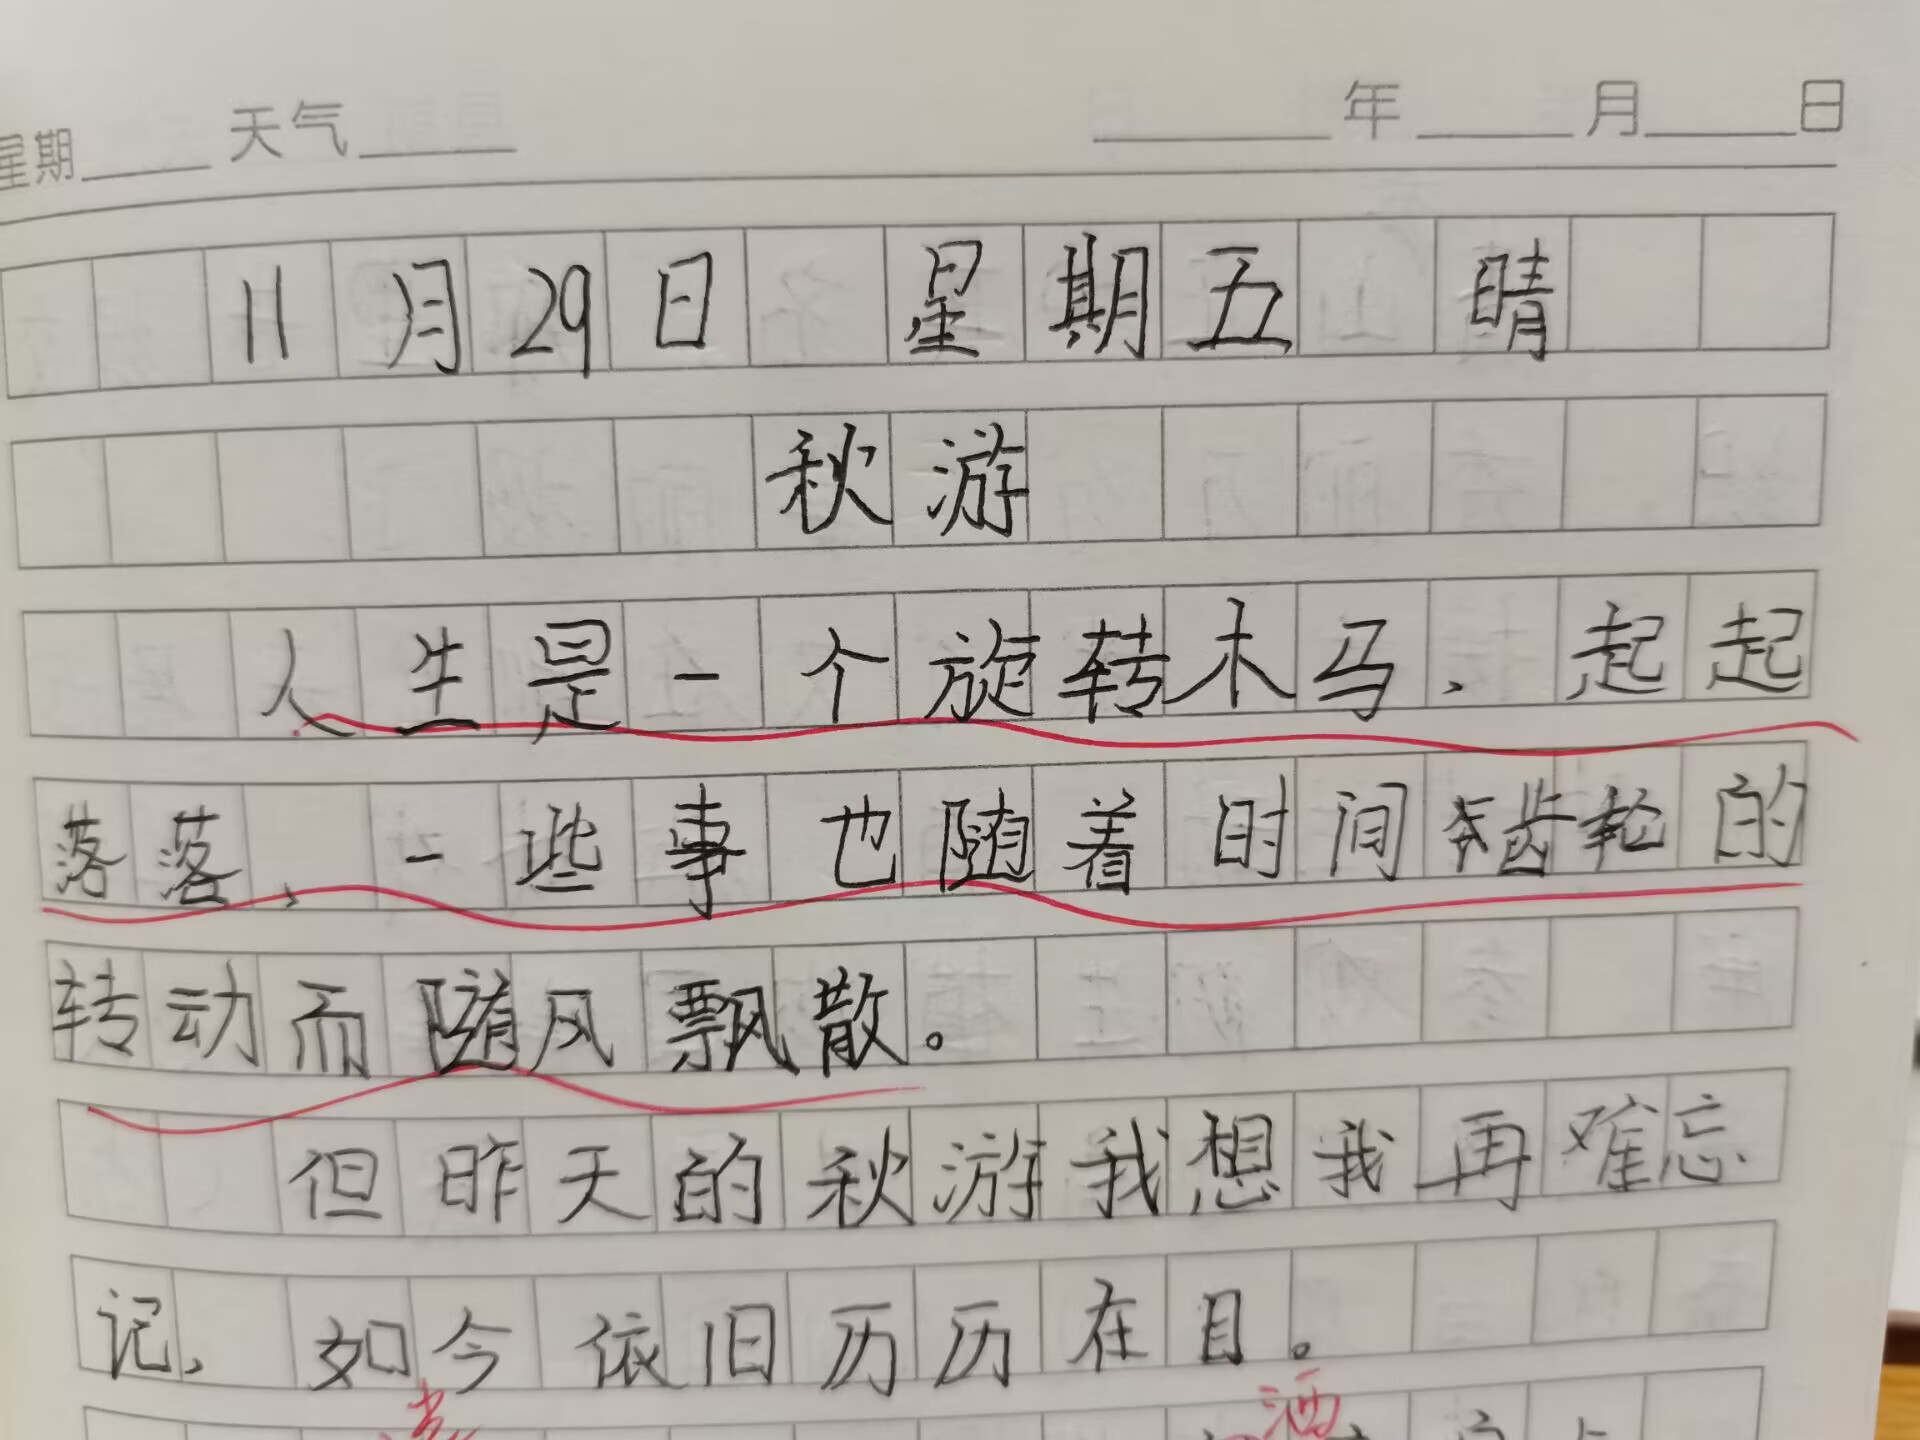 星期 天气 年 月 日
11月29日 星期五 晴
秋游
人生是一个旋转木马、起起
落落、一些事也随着时间齿轮的
转动而随风飘散。
但昨天的秋游我想我再难忘
记、如今依旧历历在目。
洒